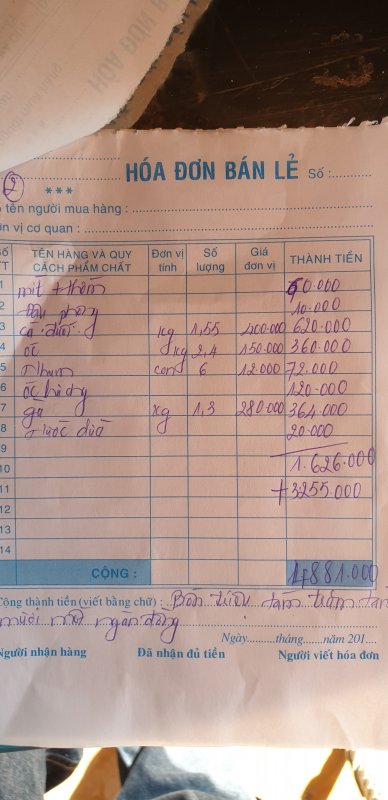 HÓA ĐƠN BÁN LẺ Số :
2
***
tên người mua hàng :
n vị cơ quan :
Số TT TÊN HÀNG VÀ QUY CÁCH PHẨM CHẤT Đơn vị tính Số lượng Giá đơn vị THÀNH TIỀN
1 mít + thơm 60.000
2 Đậu phộng 10.000
3 cá đuối kg 1,55 400.000 620.000
4 ốc kg 2,4 150.000 360.000
5 Nhum con 6 12.000 72.000
6 ốc hương 120.000
7 gà kg 1,3 280.000 364.000
8 nước dừa 20.000
9
10 1.626.000
11 +3.255.000
12
13
14
CỘNG : 4.881.000
Cộng thành tiền (viết bằng chữ) : Bốn triệu tám trăm tám
mươi mốt ngàn đồng
Ngày.........tháng.......năm 201....
Người nhận hàng Đã nhận đủ tiền Người viết hóa đơn